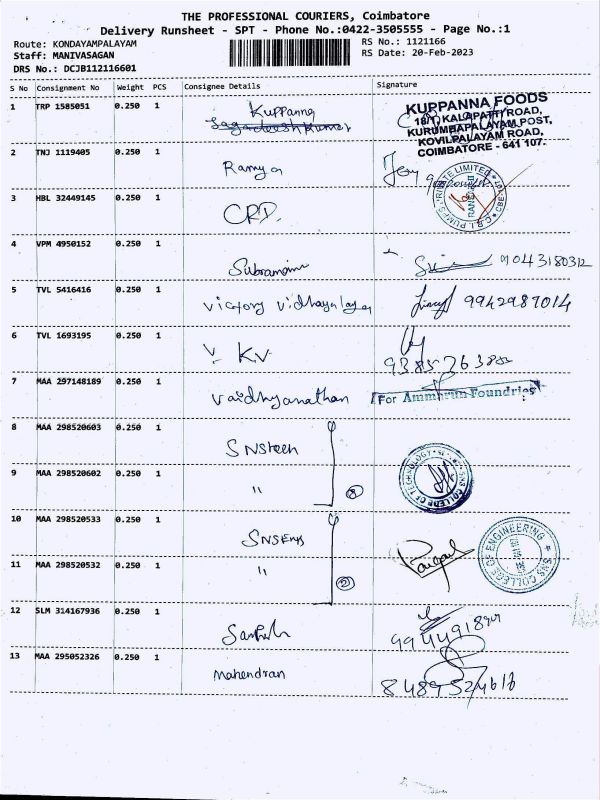 THE PROFESSIONAL COURIERS, Coimbatore
Delivery Runsheet - SPT - Phone No.:0422-3505555 - Page No.:1
Route: KONDAYAMPALAYAM
RS No.: 1121166
Staff: MANIVASAGAN
RS Date: 20-Feb-2023
DRS No.: DCJB112116601
S No Consignment No Weight PCS Consignee Details Signature
1 TRP 1585051 0.250 1 Kuppanna
KUPPANNA FOODS
18/1, KALAPATTI ROAD,
KURUMBAPALAYAM POST,
KOVILPALAYAM ROAD,
COIMBATORE - 641 107.
2 TNJ 1119405 0.250 1 Ramya
3 HBL 32449145 0.250 1 CRD.
4 VPM 4950152 0.250 1 Subramani 9104318032
5 TVL 5416416 0.250 1 Victory Vidhayalaya 9942987014
6 TVL 1693195 0.250 1 V. KV
7 MAA 297148189 0.250 1 Vaidhyanathan For Ammarun Foundries
8 MAA 298520603 0.250 1 SNStech
9 MAA 298520602 0.250 1 "
SNS COLLEGE OF TECHNOLOGY
10 MAA 298520533 0.250 1 SNSEngg
11 MAA 298520532 0.250 1 " 2
SNS COLLEGE OF ENGINEERING
12 SLM 314167936 0.250 1
13 MAA 295052326 0.250 1 Mahendran 8489524616